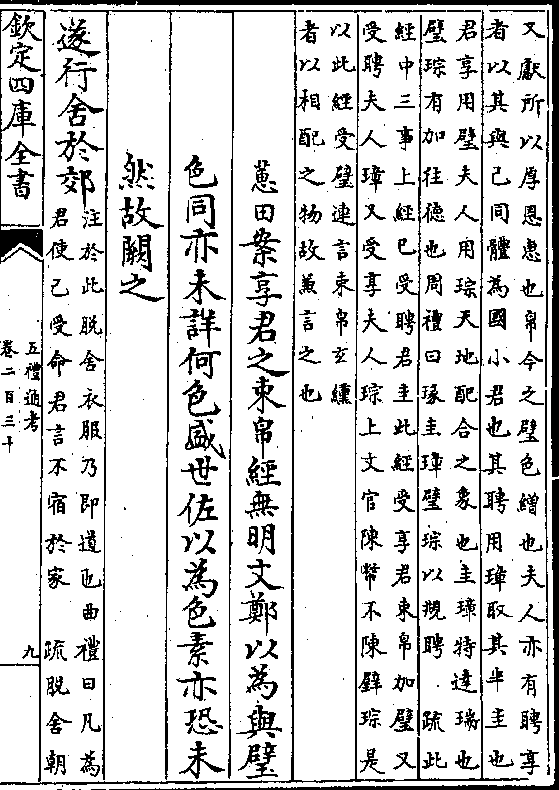 又獻所以厚恩惠也帛今之璧色繒也夫人亦有聘享
者以其與己同體為國小君也其聘用璋取其半圭也
君享用璧夫人用琮天地配合之象也圭璋特達瑞也
璧琮有加往德也周禮曰瑑圭璋璧琮以覜聘 疏此
經中三事上經已受聘君圭此經受享君束帛加璧又
受聘夫人璋又受享夫人琮上文官陳幣不陳璧琮是
以此經受璧連言束帛玄纁
者以相配之物故兼言之也
蕙田案享君之束帛經無明文鄭以為與璧
色同亦未詳何色盛世佐以為色素亦恐未
然故闕之
遂行舍於郊
注於此脱舍衣服乃即道也曲禮曰凡為
君使己受命君言不宿於家 疏脱舍朝
欽定四庫全書
五禮通考
卷二百三十
九